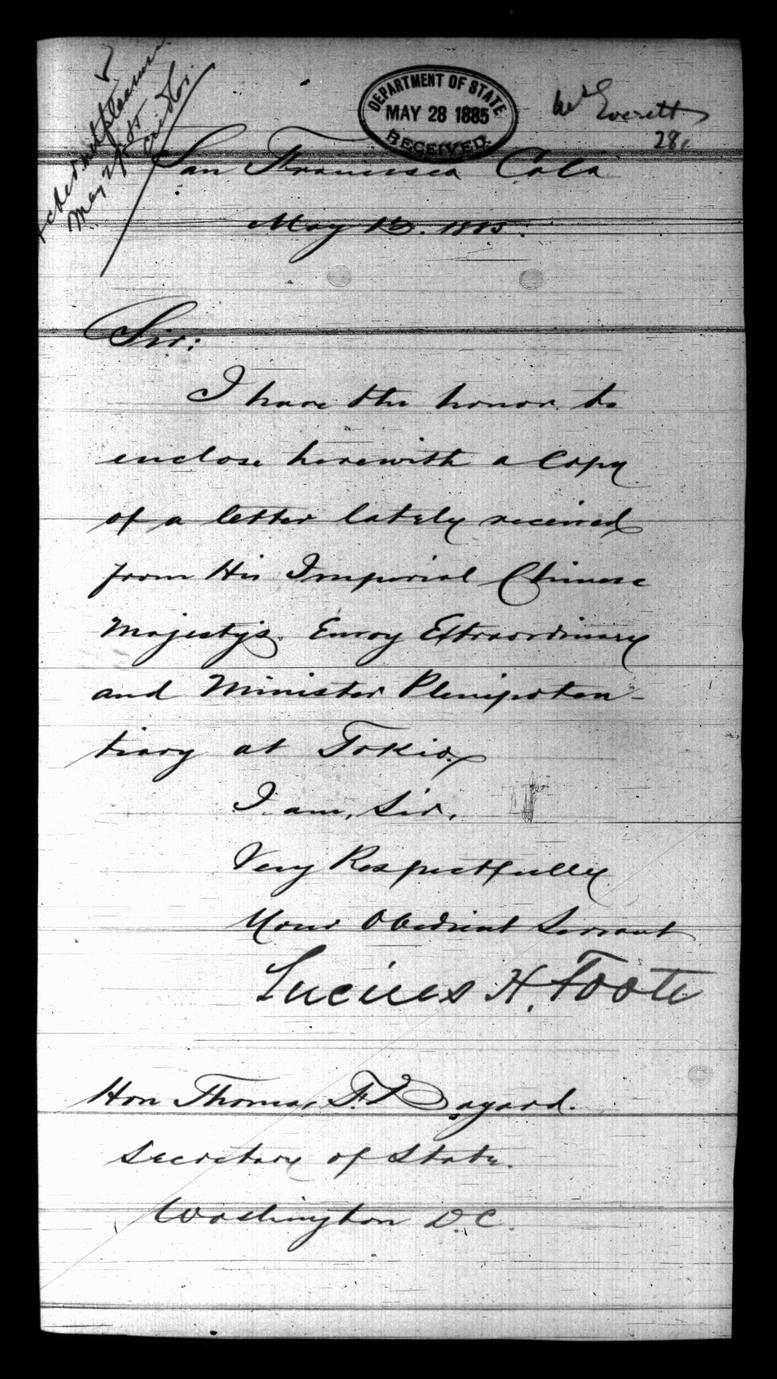 DEPARTMENT OF STATE
MAY 28 1885
RECEIVED.
Mr Everett
28.
May 29
San Francisco Cala
May 1885.
Sir:
I have the honor to
enclose herewith a Copy
of a letter lately received
from His Imperial Chinese
Majesty's Envoy Extraordinary
and Minister Plenipoten-
tiary at Tokio.
I am, Sir,
Very Respectfully
Your Obedient Servant
Lucius H. Foote
Hon Thomas F. Bayard.
Secretary of State.
Washington D.C.